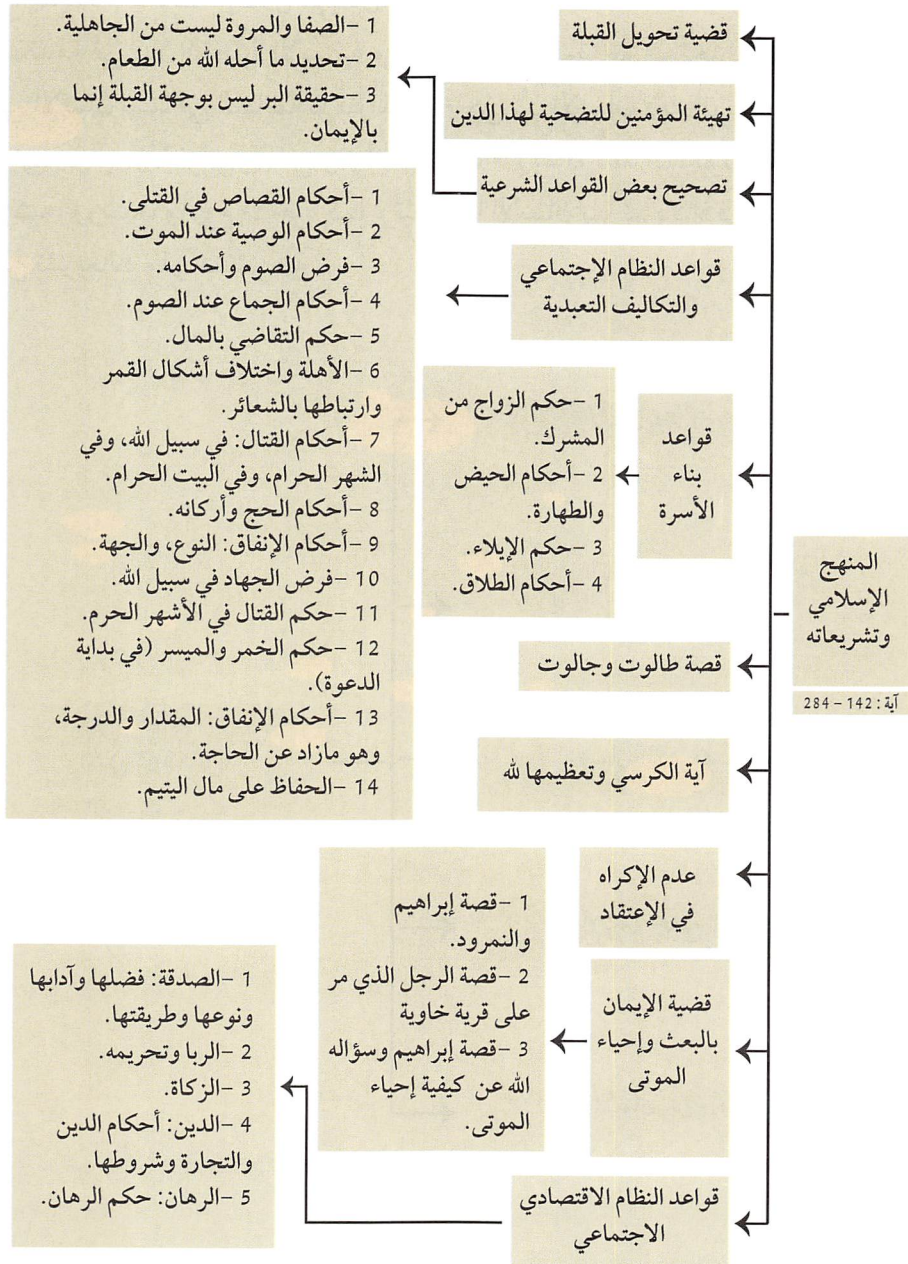 المنهج
الإسلامي
وتشريعاته
آية : 142 – 284
قضية تحويل القبلة
تهيئة المؤمنين للتضحية لهذا الدين
تصحيح بعض القواعد الشرعية
1 –الصفا والمروة ليست من الجاهلية.
2 –تحديد ما أحله الله من الطعام.
3 –حقيقة البر ليس بوجهة القبلة إنما
بالإيمان.
قواعد النظام الإجتماعي
والتكاليف التعبدية
1 –أحكام القصاص في القتلى.
2 –أحكام الوصية عند الموت.
3 –فرض الصوم وأحكامه.
4 –أحكام الجماع عند الصوم.
5 –حكم التقاضي بالمال.
6 –الأهلة واختلاف أشكال القمر
وارتباطها بالشعائر.
7 –أحكام القتال: في سبيل الله، وفي
الشهر الحرام، وفي البيت الحرام.
8 –أحكام الحج وأركانه.
9 –أحكام الإنفاق: النوع، والجهة.
10 –فرض الجهاد في سبيل الله.
11 –حكم القتال في الأشهر الحرم.
12 –حكم الخمر والميسر (في بداية
الدعوة).
13 –أحكام الإنفاق: المقدار والدرجة،
وهو مازاد عن الحاجة.
14 –الحفاظ على مال اليتيم.
قواعد
بناء
الأسرة
1 –حكم الزواج من
المشرك.
2 –أحكام الحيض
والطهارة.
3 –حكم الإيلاء.
4 –أحكام الطلاق.
قصة طالوت وجالوت
آية الكرسي وتعظيمها لله
عدم الإكراه
في الإعتقاد
قضية الإيمان
بالبعث وإحياء
الموتى
1 –قصة إبراهيم
والنمرود.
2 –قصة الرجل الذي مر
على قرية خاوية
3 –قصة إبراهيم وسؤاله
الله عن كيفية إحياء
الموتى.
قواعد النظام الاقتصادي
الاجتماعي
1 –الصدقة: فضلها وآدابها
ونوعها وطريقتها.
2 –الربا وتحريمه.
3 –الزكاة.
4 –الدين: أحكام الدين
والتجارة وشروطها.
5 –الرهان: حكم الرهان.